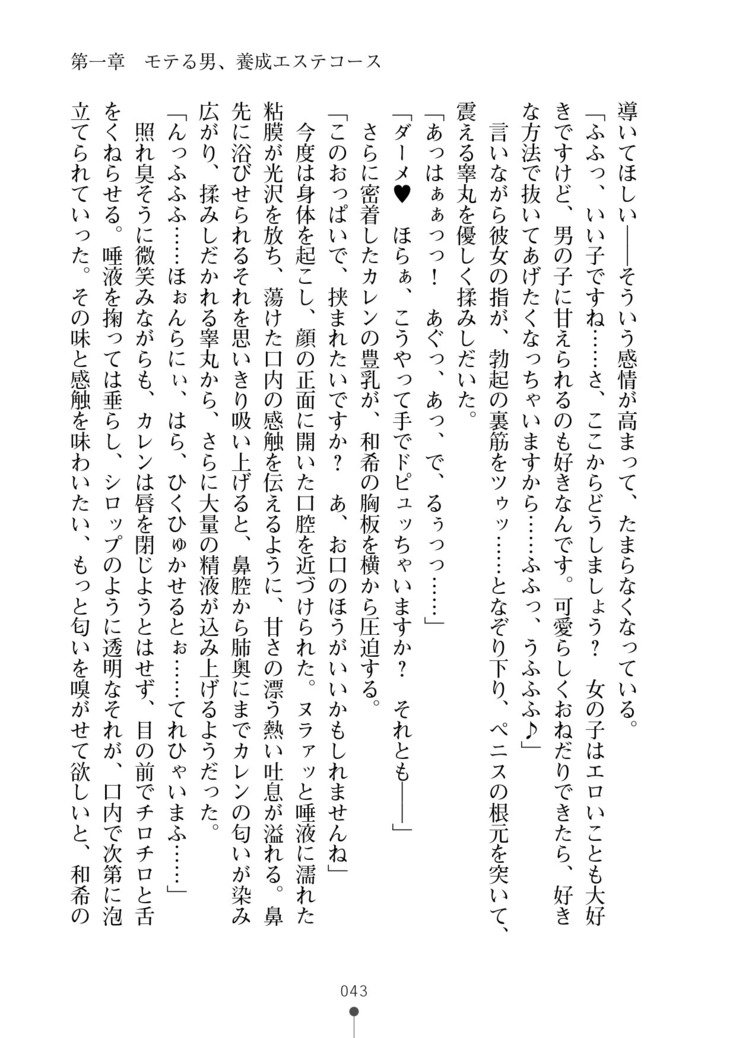 第一章　モテる男、養成エステコース
導いてほしい――そういう感情が高まって、たまらなくなっている。
「ふふっ、いい子ですね……さ、ここからどうしましょう？　女の子はエロいことも大好
きですけど、男の子に甘えられるのも好きなんです。可愛らしくおねだりできたら、好き
な方法で抜いてあげたくなっちゃいますから……ふふっ、うふふふ♪」
　言いながら彼女の指が、勃起の裏筋をツゥッ……となぞり下り、ペニスの根元を突いて、
震える睾丸を優しく揉みしだいた。
「あっはぁぁっっ！　あぐっ、あっ、で、るぅっっ……」
「ダーメ♥　ほらぁ、こうやって手でドピュッちゃいますか？　それとも――」
　さらに密着したカレンの豊乳が、和希の胸板を横から圧迫する。
「このおっぱいで、挟まれたいですか？　あ、お口のほうがいいかもしれませんね」
　今度は身体を起こし、顔の正面に開いた口腔を近づけられた。ヌラァッと唾液に濡れた
粘膜が光沢を放ち、蕩けた口内の感触を伝えるように、甘さの漂う熱い吐息が溢れる。鼻
先に浴びせられるそれを思いきり吸い上げると、鼻腔から肺奥にまでカレンの匂いが染み
広がり、揉みしだかれる睾丸から、さらに大量の精液が込み上げるようだった。
「んっふふふ……ほぉんらにぃ、はら、ひくひゅかせるとぉ……てれひゃいまふ……」
　照れ臭そうに微笑みながらも、カレンは唇を閉じようとはせず、目の前でチロチロと舌
をくねらせる。唾液を掬っては垂らし、シロップのように透明なそれが、口内で次第に泡
立てられていった。その味と感触を味わいたい、もっと匂いを嗅がせて欲しいと、和希の
043